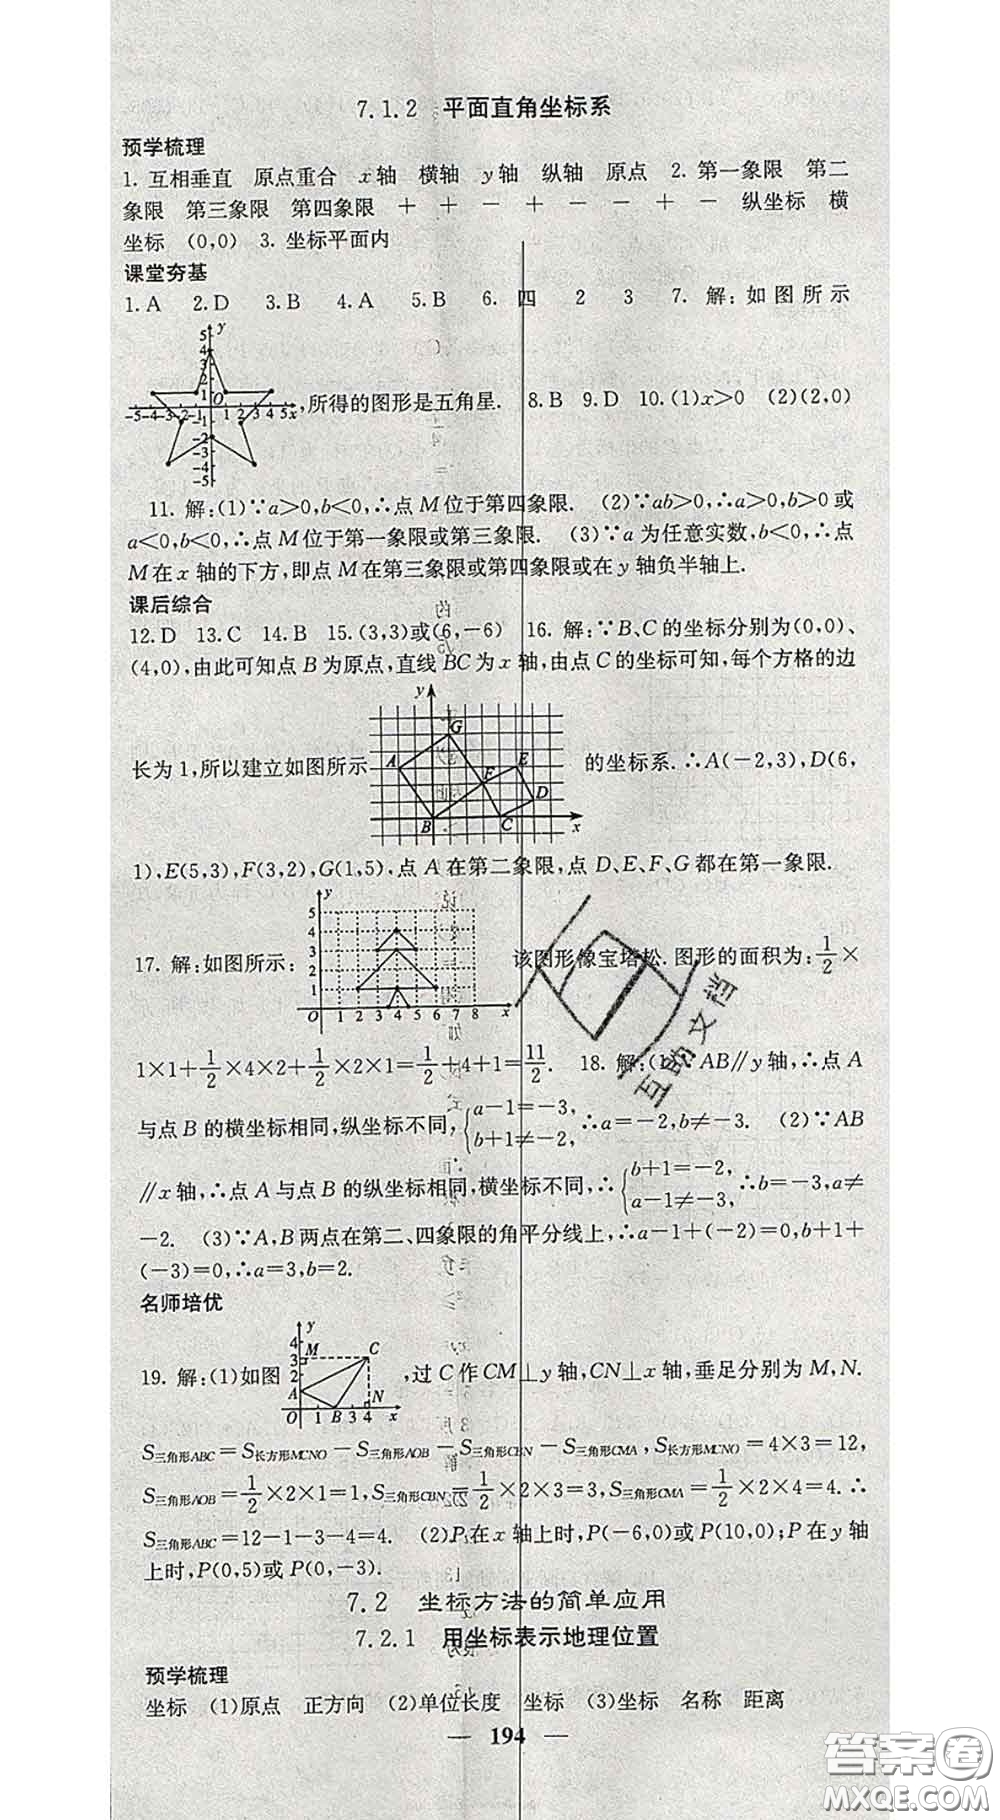 7.1.2 平面直角坐标系
预学梳理
1. 互相垂直 原点重合 x轴 横轴 y轴 纵轴 原点 2. 第一象限 第二
象限 第三象限 第四象限 + + - + - - + - 纵坐标 横
坐标 (0,0) 3. 坐标平面内
课堂夯基
1.A 2.D 3.B 4.A 5.B 6. 四 2 3 7. 解:如图所示
,所得的图形是五角星. 8.B 9.D 10.(1)x>0 (2)(2,0)
11. 解:(1)∵a>0,b<0,∴点M位于第四象限. (2)∵ab>0,∴a>0,b>0或
a<0,b<0,∴点M位于第一象限或第三象限. (3)∵a为任意实数,b<0,∴点
M在x轴的下方,即点M在第三象限或第四象限或在y轴负半轴上.
课后综合
12.D 13.C 14.B 15.(3,3)或(6,-6) 16. 解:∵B、C的坐标分别为(0,0)、
(4,0),由此可知点B为原点,直线BC为x轴,由点C的坐标可知,每个方格的边
长为1,所以建立如图所示 y G A E F D B C x 的坐标系.∴A(-2,3),D(6,
1),E(5,3),F(3,2),G(1,5),点A在第二象限,点D、E、F、G都在第一象限.
17. 解:如图所示: 该图形像宝塔松. 图形的面积为:1/2×
1×1+1/2×4×2+1/2×2×1=1/2+4+1=11/2. 18. 解:(1)∵AB∥y轴,∴点A
与点B的横坐标相同,纵坐标不同,{a-1=-3, b+1≠-2, ∴a=-2,b≠-3. (2)∵AB
∥x轴,∴点A与点B的纵坐标相同,横坐标不同,∴{b+1=-2, a-1≠-3, ∴b=-3,a≠
-2. (3)∵A,B两点在第二、四象限的角平分线上,∴a-1+(-2)=0,b+1+
(-3)=0,∴a=3,b=2.
名师培优
19. 解:(1)如图 ,过C作CM⊥y轴,CN⊥x轴,垂足分别为M,N.
S三角形ABC=S长方形MCNO-S三角形AOB-S三角形CBN-S三角形CMA,S长方形MCNO=4×3=12,
S三角形AOB=1/2×2×1=1,S三角形CBN=1/2×2×3=3,S三角形CMA=1/2×2×4=4.∴
S三角形ABC=12-1-3-4=4. (2)P在x轴上时,P(-6,0)或P(10,0);P在y轴
上时,P(0,5)或P(0,-3).
7.2 坐标方法的简单应用
7.2.1 用坐标表示地理位置
预学梳理
坐标 (1)原点 正方向 (2)单位长度 坐标 (3)坐标 名称 距离
— 194 —
互助文档
答案圈
MXQE.COM